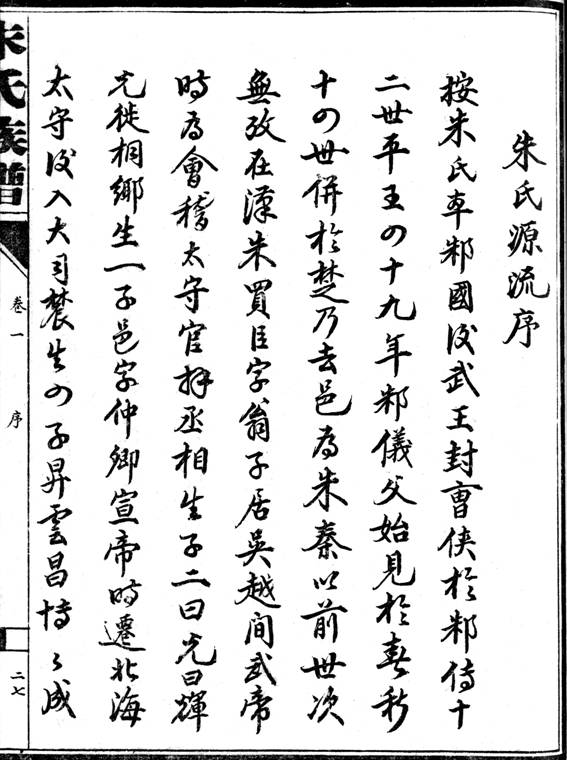 朱氏源流序
按朱氏本邾國後武王封曹俠於邾傳十
二世平王四十九年邾儀父始見於春秋
十四世併於楚乃去邑為朱秦以前世次
無攷在漢朱買臣字翁子居吳越间武帝
時為會稽太守官拜丞相生子二曰光曰輝
光徙相鄉生一子邑字仲卿宣帝時遷北海
太守後入大司農生四子昇雲昌博々成
朱氏族譜
卷一
序
二七